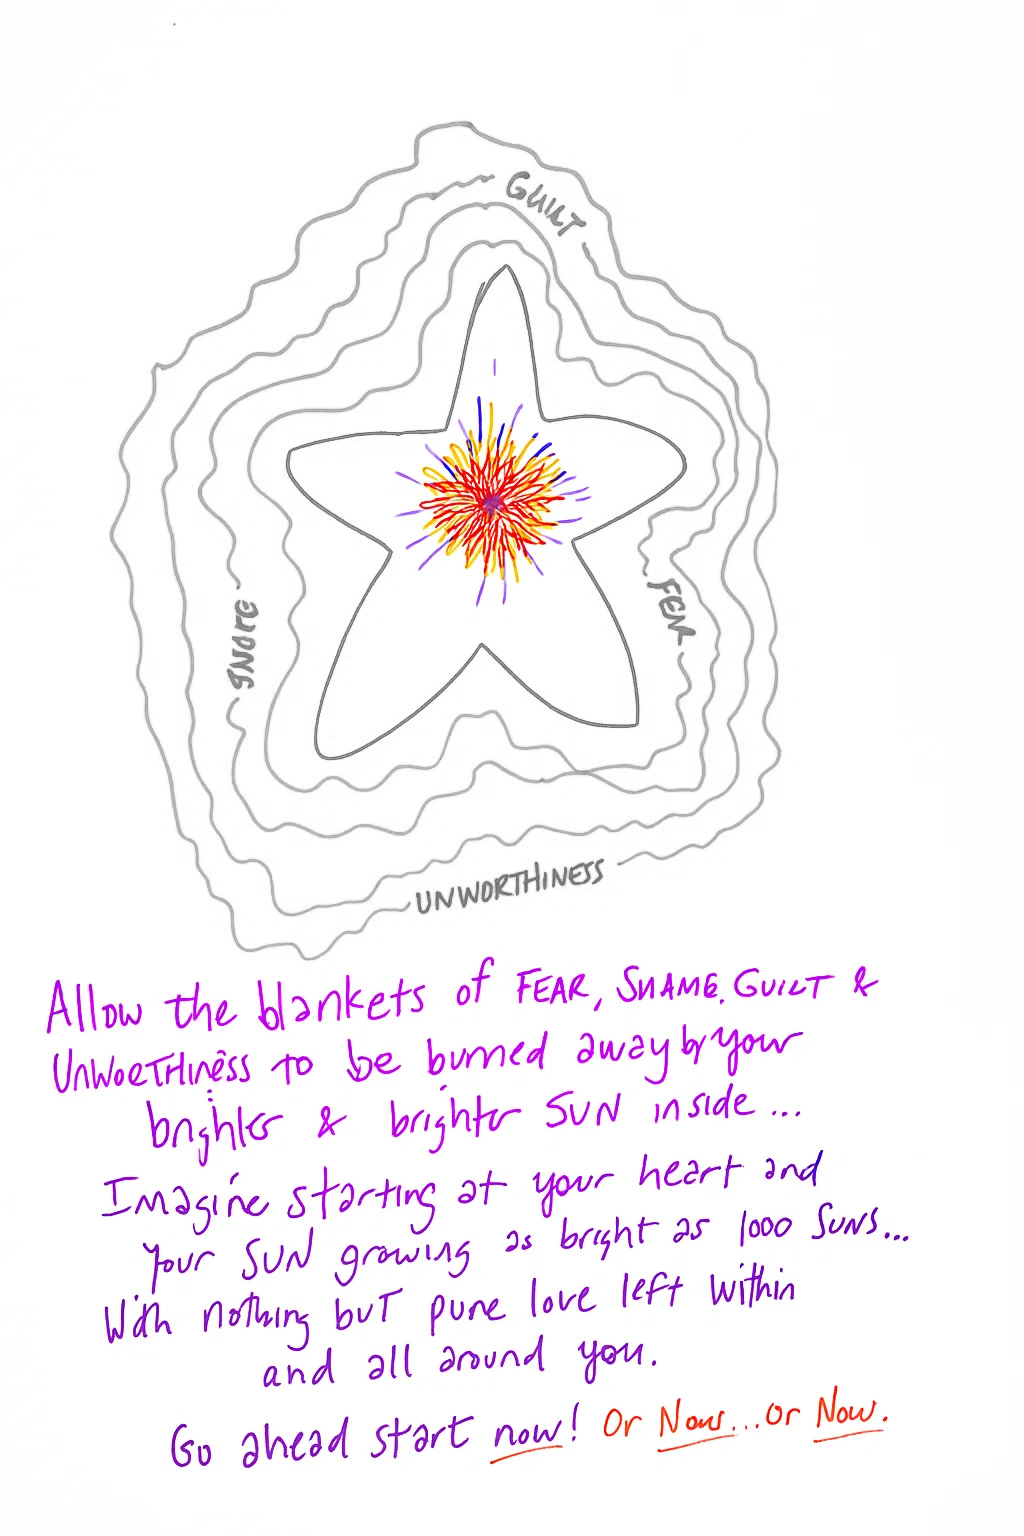 GUILT
FEAR
SHAME
UNWORTHINESS
Allow the blankets of FEAR, SHAME, GUILT &
UNWORTHINESS to be burned away by your
brighter & brighter SUN inside...
Imagine starting at your heart and
your SUN growing as bright as 1000 SUNS...
With nothing but pure love left within
and all around you.
Go ahead start now! Or Now...or Now.